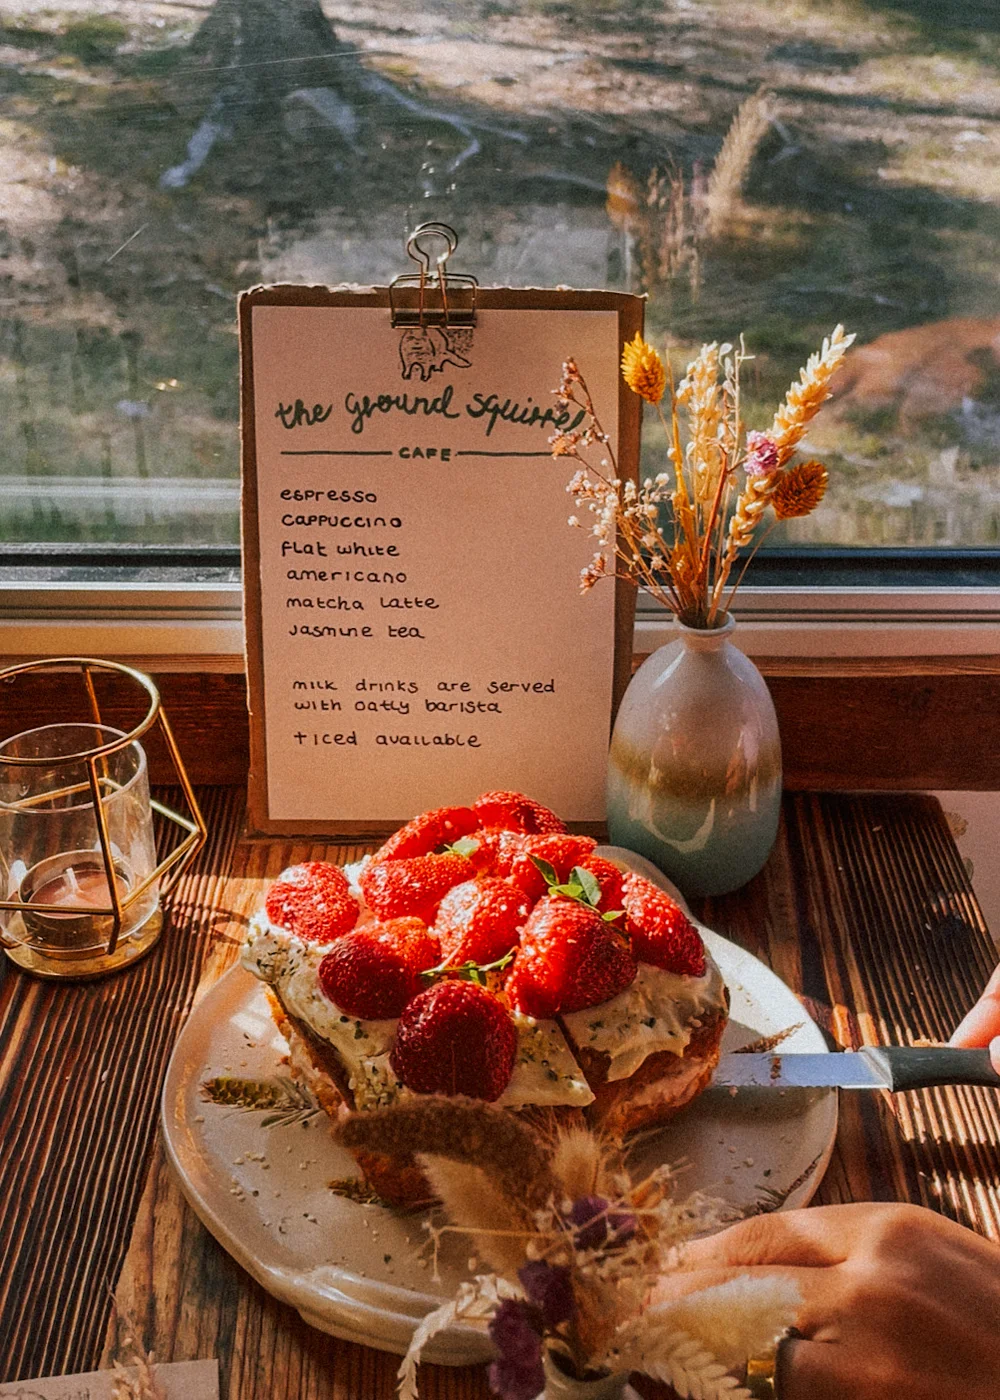 the ground squirrel
CAFE
espresso
cappuccino
flat white
americano
matcha latte
Jasmine tea
milk drinks are served
with oatly barista
+ iced available